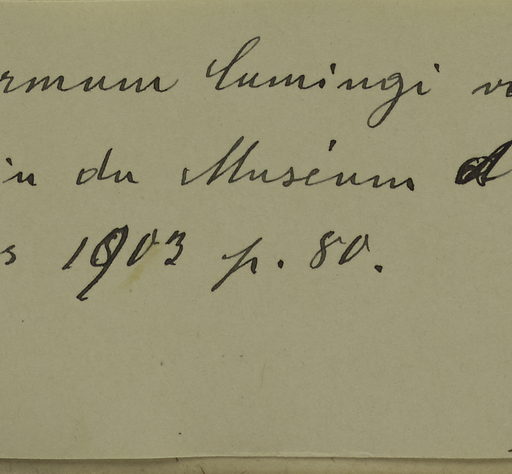 rmum Cumingi v
in du Muséum d
s 1903 p. 80.